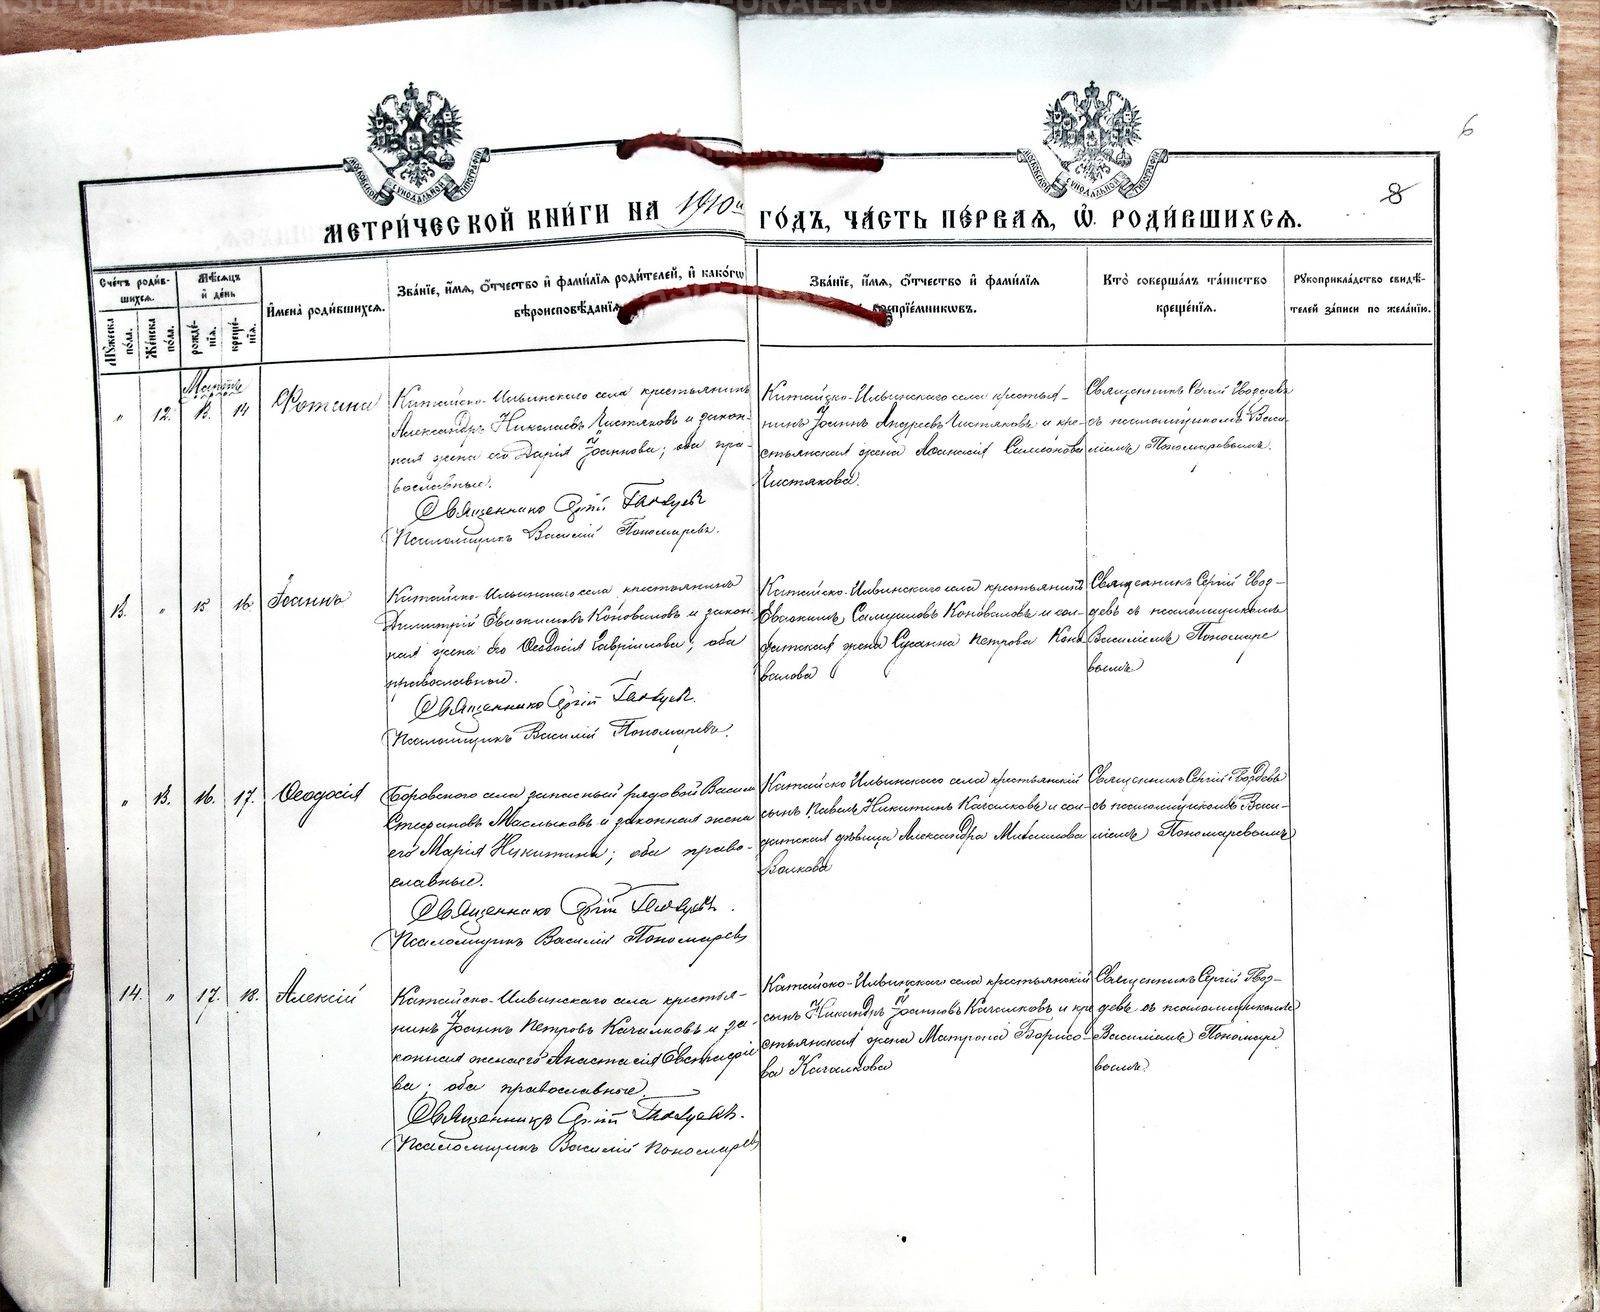 МОСКОВСКОЙ СѴНОДАЛЬНОЙ ТИПОГРАФІИ
МОСКОВСКОЙ СѴНОДАЛЬНОЙ ТИПОГРАФІИ
6
8
МЕТРИ́ЧЕСКОЙ КНИ́ГИ НА 1910й ГО́ДЪ, ЧА́СТЬ ПЕ́РВАЯ, Ѿ РОДИ́ВШИХСЯ.
Сче́тъ роди́в-
шихся.
Мѣ́сяцъ
и́ день
Му́жеска по́ла.
Же́нска по́ла.
рожде́-
нїя.
креще́-
нїя.
И́мена̀ роди́вшихся.
Зва́нїе, и́мя, о́тчество и́ фами́лїя роди́телей, и́ како́гѡ
вѣроисповѣ́данїя
Зва́нїе, и́мя, о́тчество и́ фами́лїя
воспрїе́мникѡвъ.
Кто̀ соверша́лъ та́инство
креще́нїя.
Рꙋкоприкла́дство свидѣ́-
телей за́писи по жела́нїю.
Мартъ
" 12. 13. 14 Фотина
Китайско-Ильинскаго села крестьянинъ
Александръ Николаевъ Чистяковъ и закон-
ная жена его Дарія Іоаннова; оба пра-
вославные.
Священникъ Сергій Гвоздевъ
Псаломщикъ Василій Пономаревъ.
Китайско-Ильинскаго села крестья-
нинъ Іоаннъ Андреевъ Чистяковъ и кре-
стьянская жена Аѳанасія Симеонова
Чистякова.
Священникъ Сергій Гвоздевъ
съ псаломщикомъ Васи-
ліемъ Пономаревымъ.
13. " 15 16 Іоаннъ
Китайско-Ильинскаго села крестьянинъ
Димитрій Евѳимовъ Коноваловъ и закон-
ная жена его Ѳеодосія Гавріилова; оба
православные.
Священникъ Сергій Гвоздевъ.
Псаломщикъ Василій Пономаревъ.
Китайско-Ильинскаго села крестьянинъ
Самуиловъ Коноваловъ и сол-
датская жена Сусанна Петрова Коно-
валова
Священникъ Сергій Гвоз-
девъ съ псаломщикомъ
Василіемъ Пономаре
вымъ
" 13. 16. 17. Ѳеодосія
Боровского села запасный рядовой Василій
Стефановъ Маслыковъ и законная жена
его Марія Никитина; оба право-
славные.
Священникъ Сергій Гвоздевъ.
Псаломщикъ Василій Пономаревъ
Китайско-Ильинскаго села крестьянскій
сынъ Павелъ Никитинъ Качалковъ и сол-
датская дѣвица Александра Михаилова
Волкова
Священникъ Сергій Гвоздевъ
съ псаломщикомъ Васи-
ліемъ Пономаревымъ
14. " 17. 18. Алексій
Китайско-Ильинскаго села крестья-
нинъ Іоаннъ Петровъ Качалковъ и за-
конная жена его Анастасія Евстафіе
ва; оба православные.
Священникъ Сергій Гвоздевъ.
Псаломщикъ Василій Пономаревъ
Китайско-Ильинскаго села крестьянскій
сынъ Никандръ Іоанновъ Качалковъ и кре
стьянская жена Матрона Борисо-
ва Качалкова
Священникъ Сергій Гвоз-
девъ съ псаломщикомъ
Василіемъ Пономаре
вымъ